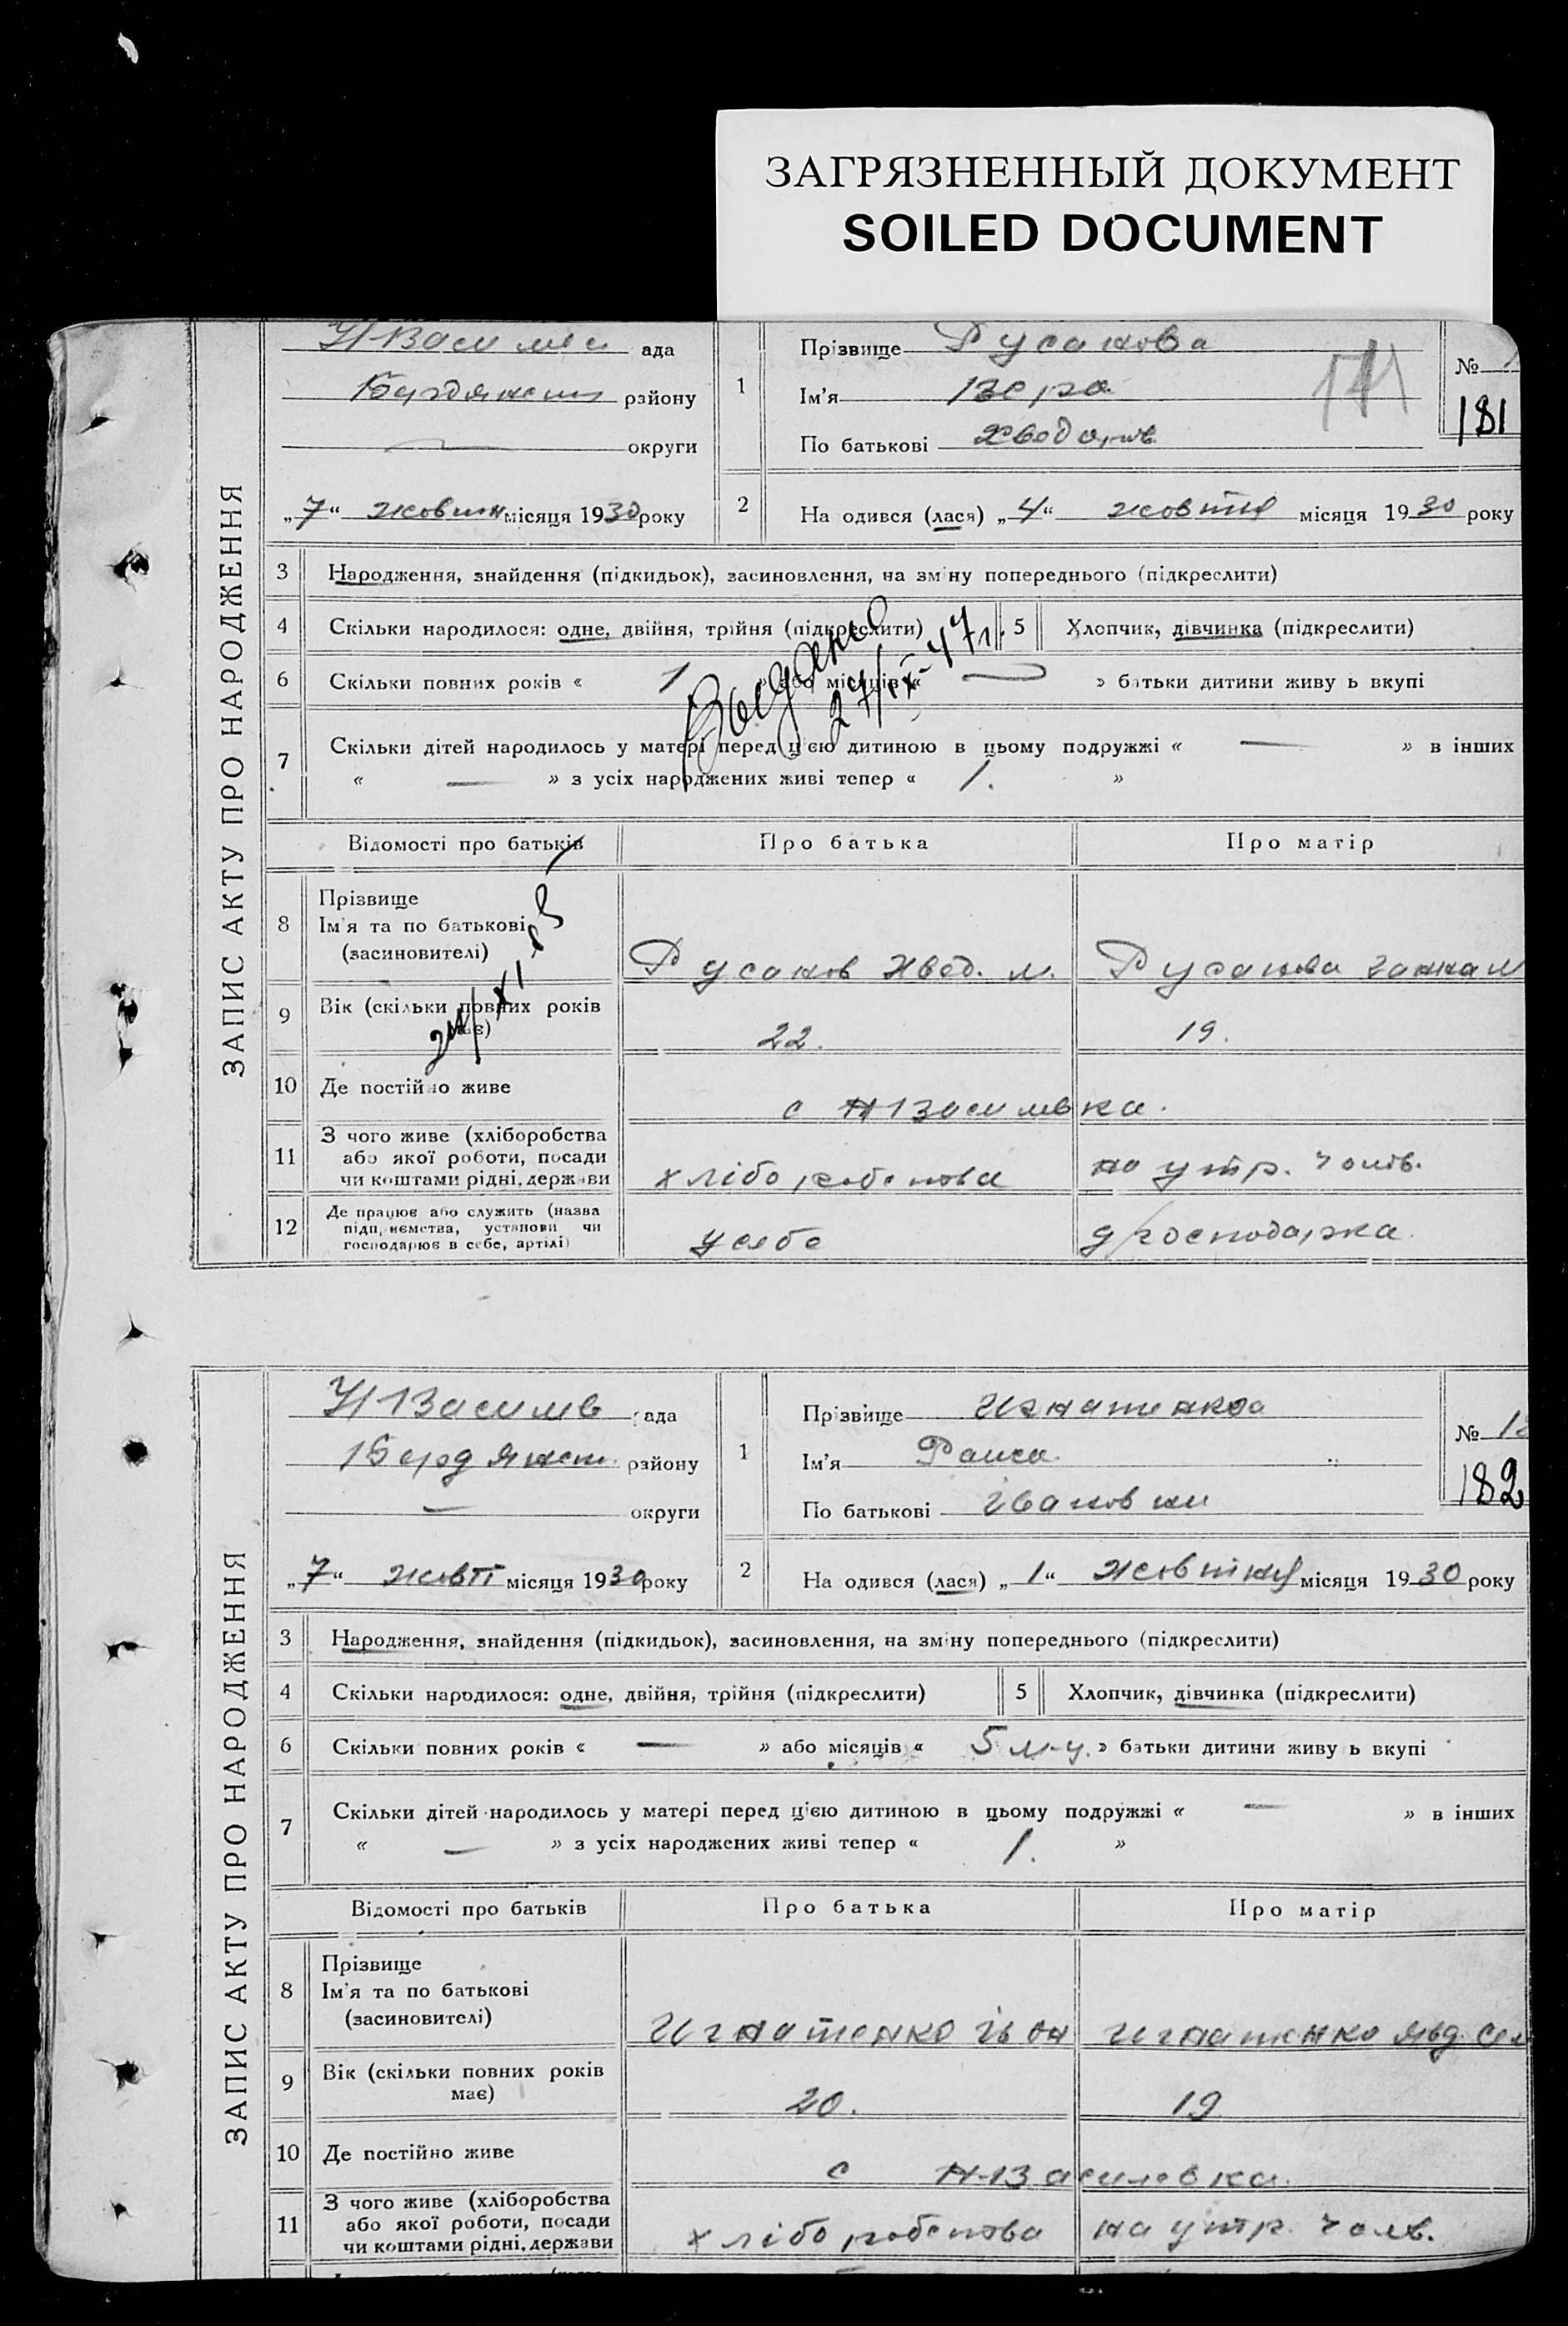 ЗАГРЯЗНЕННЫЙ ДОКУМЕНТ
SOILED DOCUMENT
ЗАПИС АКТУ ПРО НАРОДЖЕННЯ
ада
району
округи
„7“ місяця 1930 року
1
Прізвище Русанова
Ім'я Вера
По батькові
№
181
2
На одився (лася) „4“ жовтня місяця 1930 року
3 Народження, знайдення (підкидьок), засиновлення, на зміну попереднього (підкреслити)
4 Скільки народилося: одне, двійня, трійня (підкреслити) 5 Хлопчик, дівчинка (підкреслити)
6 Скільки повних років « 1 » або місяців « — » батьки дитини живу ь вкупі
7 Скільки дітей народилось у матері перед цією дитиною в цьому подружжі « — » в інших
« — » з усіх народжених живі тепер « 1. »
Відомості про батьків Про батька Про матір
8 Прізвище
Ім'я та по батькові
(засиновителі)
Русанов Хвед. М. Русанова Ганна М
9 Вік (скільки повних років має) 22. 19.
10 Де постійно живе с Н Василівка.
11 З чого живе (хліборобства
або якої роботи, посади
чи коштами рідні, держави
на утр. чолов.
12 Де працює або служить (назва
підприємства, установи чи
господарює в себе, артілі)
у себе д/господарка.
ЗАПИС АКТУ ПРО НАРОДЖЕННЯ
Н Василів ада
Бердянськ району
— округи
„7“ місяця 1930 року
1
Прізвище
Ім'я Раиса
По батькові Івановни
№ 18
182
2
На одився (лася) „1“ жовтня місяця 1930 року
3 Народження, знайдення (підкидьок), засиновлення, на зміну попереднього (підкреслити)
4 Скільки народилося: одне, двійня, трійня (підкреслити) 5 Хлопчик, дівчинка (підкреслити)
6 Скільки повних років « — » або місяців « 5 м-ц. » батьки дитини живу ь вкупі
7 Скільки дітей народилось у матері перед цією дитиною в цьому подружжі « — » в інших
« — » з усіх народжених живі тепер « 1. »
Відомості про батьків Про батька Про матір
8 Прізвище
Ім'я та по батькові
(засиновителі)
Игнатенко Ів Игнатенко Явд.
9 Вік (скільки повних років має) 20. 19
10 Де постійно живе с Н-Василевка.
11 З чого живе (хліборобства
або якої роботи, посади
чи коштами рідні, держави
на утр. чолв.